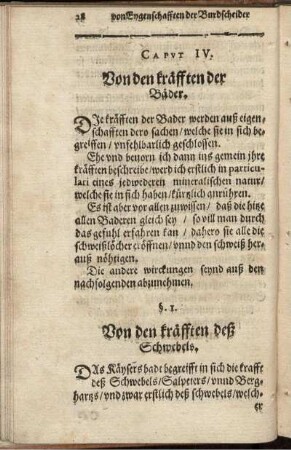 28 von Eygenschafften der Burdscheider
CAPVT IV.
Von den kräfften der
Bäder.
DIe kräfften der Bader werden auß eigen-
schafften dero sachen / welche sie in sich be-
greiffen / vnfehlbarlich geschlossen.
Ehe vnd beuorn ich dann ins gemein jhre
kräfften beschreibe / werd ich erstlich in particu-
lari eines jedwederen mineralischen natur /
welche sie in sich haben / kürtzlich anrühren.
Es ist aber vor allen zuwissen / daß die hitze
allen Baderen gleich sey / so vill man durch
das gefuhl erfahren kan / dahero sie alle die
schweißlöcher eröffnen / vnnd den schweiß her-
auß nöhtigen.
Die andere wirckungen seynd auß den
nachfolgenden abzunehmen.
§. 1.
Von den kräfften deß
Schwebels.
DAs Käysers badt begreifft in sich die krafft
deß Schwebels / Salpeters / vnnd Berg-
hartzs / vnd zwar erstlich deß schwebels / welch-
er